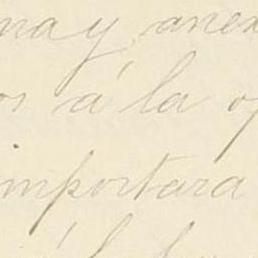 may anex
os á la o
importara